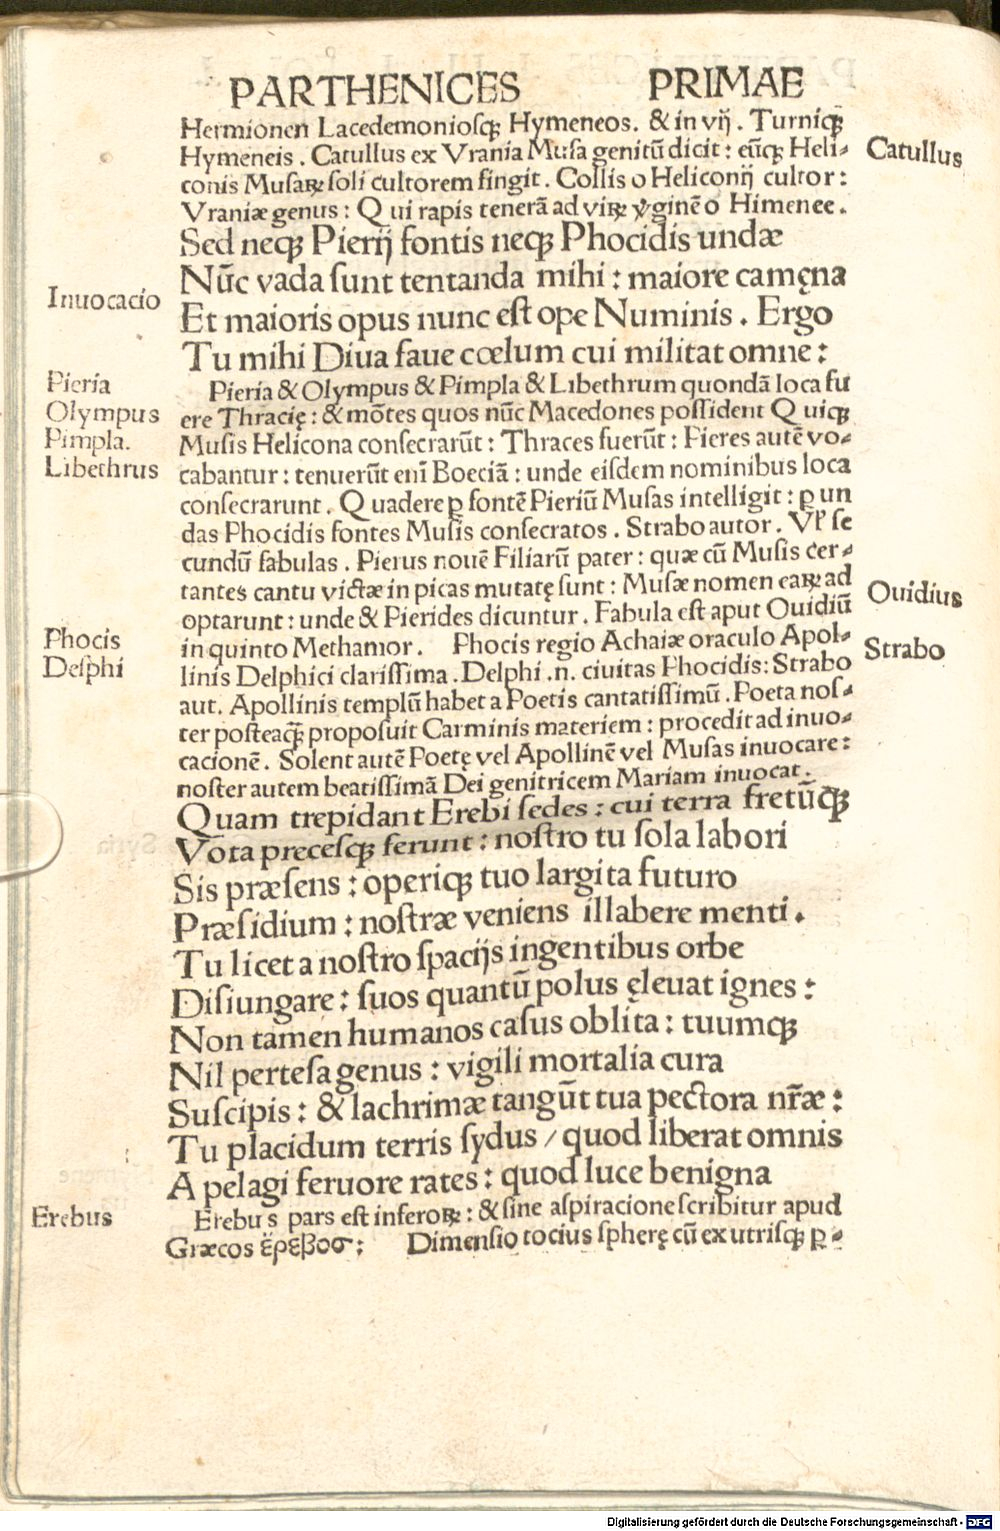 PARTHENICES PRIMAE
Hermionen Lacedemoniosqꝫ Hymeneos. & in vij. Turniqꝫ
Hymeneis. Catullus ex Vrania Musa genitū dicit: eūqꝫ Heli-
Catullus
conis Musaꝝ soli cultorem fingit. Collis o Heliconij cultor:
Vraniæ genus: Qui rapis tenerā ad viꝝ v̾ginē o Himenee.
Sed neqꝫ Pierij fontis neqꝫ Phocidis undæ
Nūc vada sunt tentanda mihi: maiore camęna
Inuocacio
Et maioris opus nunc est ope Numinis. Ergo
Tu mihi Diua faue cœlum cui militat omne:
Pieria
Pieria & Olympus & Pimpla & Libethrum quondā loca fu
Olympus
ere Thracię: & mōtes quos nūc Macedones possident Quiqꝫ
Pimpla.
Musis Helicona consecrarūt: Thraces fuerūt: Pieres autē vo-
Libethrus
cabantur: tenuerūt enī Boeciā: unde eisdem nominibus loca
consecrarunt. Quadere ꝑ fontē Pieriū Musas intelligit: ꝑ un
das Phocidis fontes Musis consecratos. Strabo autor. Vl̾ se
cundū fabulas. Pierus nouē Filiarū pater: quæ cū Musis cer-
tantes cantu victæ in picas mutatę sunt: Musæ nomen eaꝝ ad
Ouidius
optarunt: unde & Pierides dicuntur. Fabula est aput Ouidiū
Phocis
in quinto Methamor. Phocis regio Achaiæ oraculo Apol-
Strabo
Delphi
linis Delphici clarissima. Delphi .n. ciuitas Phocidis: Strabo
aut. Apollinis templū habet a Poetis cantatissimū. Poeta nos-
ter posteaqꝫ̄ proposuit Carminis materiem: procedit ad inuo-
cacionē. Solent autē Poetę vel Apollinē vel Musas inuocare:
noster autem beatissimā Dei genitricem Mariam inuocat.
Quam trepidant Erebi sedes: cui terra fretūqꝫ
Vota precesqꝫ ferunt: nostro tu sola labori
Sis præsens: operiqꝫ tuo largita futuro
Præsidium: nostræ veniens illabere menti.
Tu licet a nostro spacijs ingentibus orbe
Disiungare: suos quantū polus ęleuat ignes:
Non tamen humanos casus oblita: tuumqꝫ
Nil pertesa genus: vigili mortalia cura
Suscipis: & lachrimæ tangūt tua pectora nr̄æ:
Tu placidum terris sydus / quod liberat omnis
A pelagi feruore rates: quod luce benigna
Erebus
Erebus pars est inferoꝝ: & sine aspiracione scribitur apud
Græcos ἔρεβοσ: Dimensio tocius spherę cū ex utrisqꝫ ꝑ-
Digitalisierung gefördert durch die Deutsche Forschungsgemeinschaft - DFG